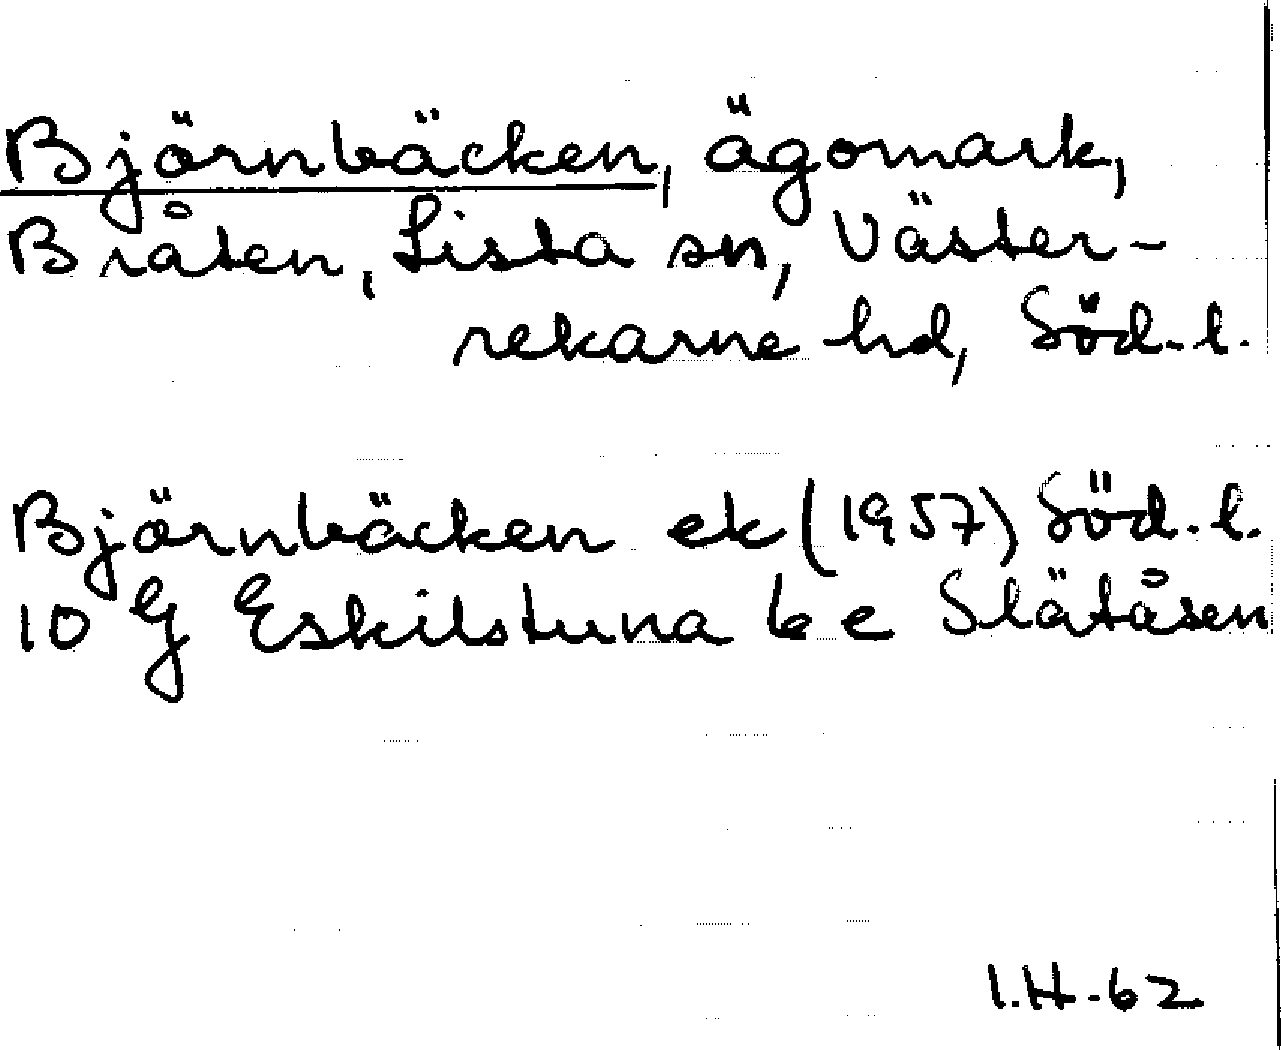 Björnbäcken, ägomark,
Bråten, Lista sn, Väster-
rekarne hd, Söd. l.
Björnbäcken ek (1957) Söd. l.
10 G Eskilstuna 6 e Slätåsen
I.H.-62